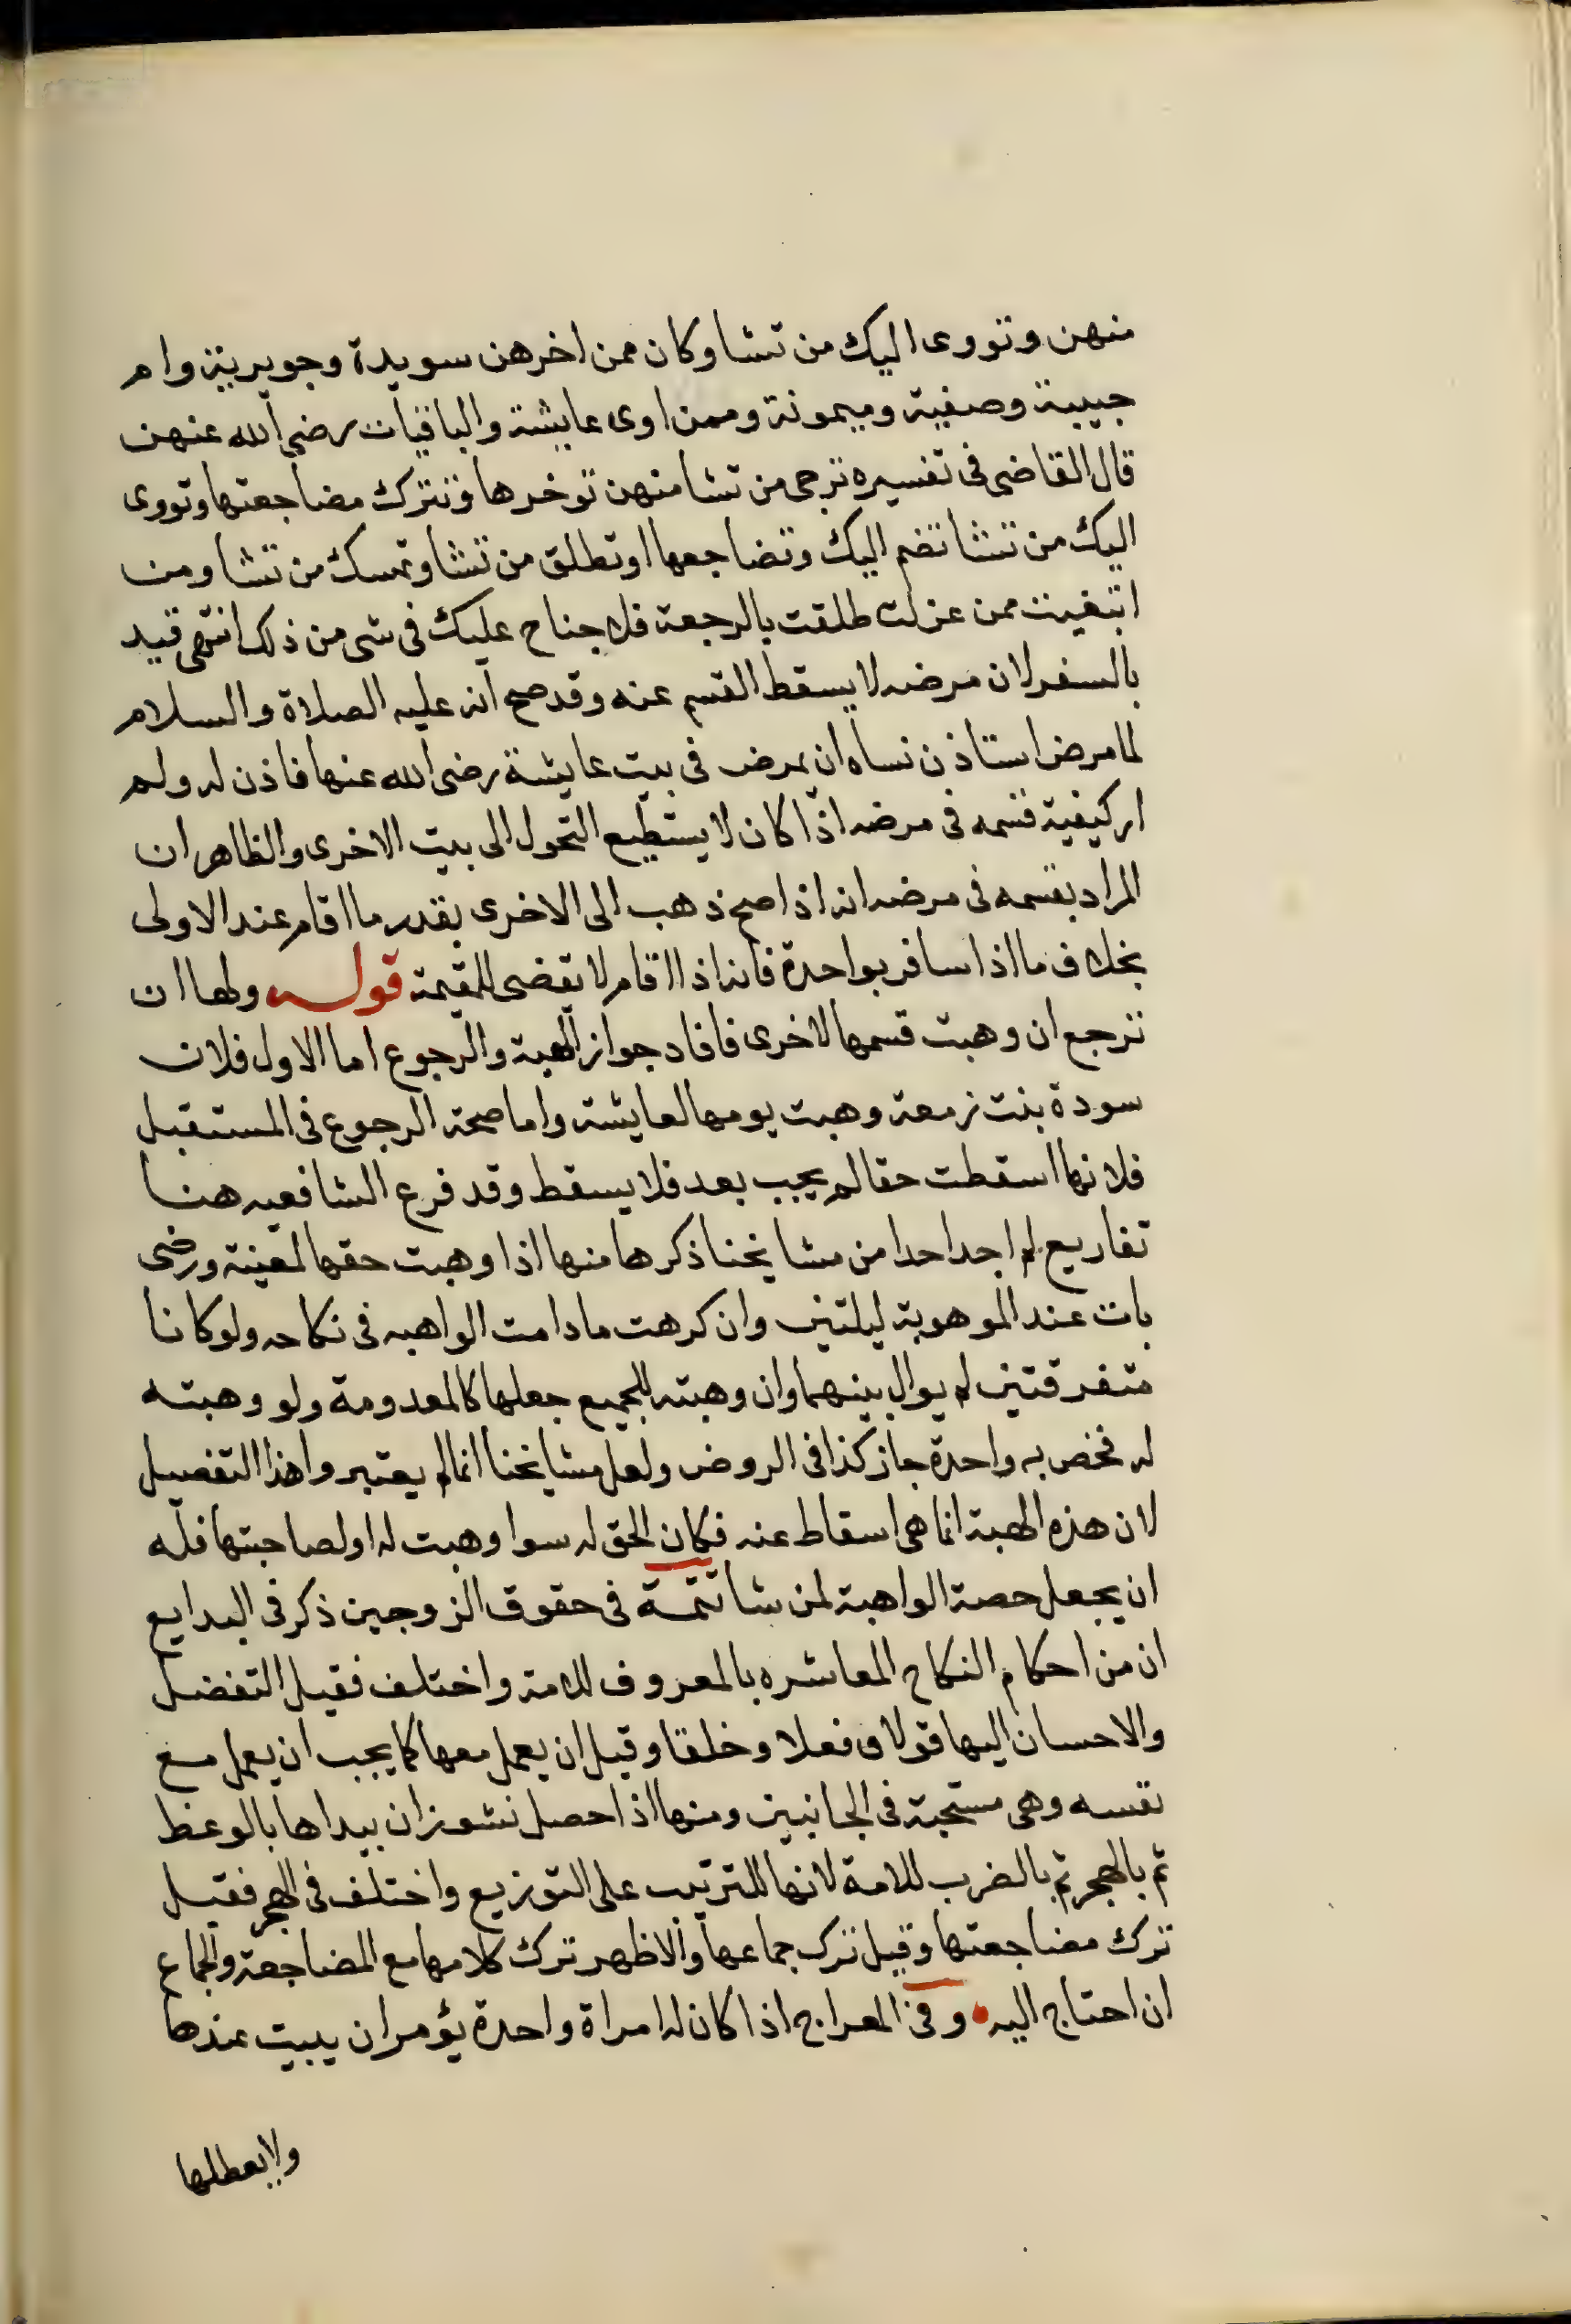 منهن وتووى اليك من تشا وكان ممن اخرهن سويدة وجويرية وام
حبيبة وصفية وميمونة وممن اوى عايشة والباقيات رضي الله عنهن
قال القاضى فى تفسيره ترجى من تشا منهن توخرها وتترك مضاجعتها وتووى
اليك من تشا تضم اليك وتضاجعها او تطلق من تشا وتمسك من تشا ومن
ابتغيت ممن عزلت طلقت بالرجعة فلا جناح عليك فى شى من ذلك انتهى قيد
بالسفر لان مرضه لا يسقط القسم عنه وقد صح انه عليه الصلاة والسلام
لما مرض استاذن نساه ان يمرض فى بيت عايشة رضى الله عنها فاذن له ولم
ار كيفية قسمه فى مرضه اذا كان لا يستطيع التحول الى بيت الاخرى والظاهر ان
المراد بقسمه فى مرضه انه اذا صح ذهب الى الاخرى بقدر ما اقام عند الاولى
بخلاف ما اذا سافر بواحدة فانه اذا اقام لا يقضى للمقيمة قوله ولها ان
ترجع ان وهبت قسمها لاخرى فافاد جواز الهبة والرجوع اما الاول فلان
سودة بنت زمعة وهبت يومها لعايشة واما صحة الرجوع فى المستقبل
فلانها اسقطت حقا لم يجب بعد فلا يسقط وقد فرع الشافعيه هنا
تفاريع لم اجد احدا من مشايخنا ذكرها منها اذا وهبت حقها لمعينة ورضى
بات عند الموهوبة ليلتين وان كرهت ما دامت الواهبه فى نكاحه ولو كانا
متفرقتين لم يوال بينهما وان وهبته للجميع جعلها كالمعدومة ولو وهبته
له فخص به واحدة جاز كذا فى الروض ولعل مشايخنا انما لم يعتبروا هذا التفصيل
لان هذه الهبة انما هى اسقاط عنه فكان الحق له سوا وهبت له او لصاحبتها فله
ان يجعل حصة الواهبة لمن شا تتمة فى حقوق الزوجين ذكر فى البدايع
ان من احكام النكاح المعاشره بالمعروف للامة واختلف فقيل التفضل
والاحسان اليها قولا وفعلا وخلقا وقيل ان يعمل معها كما يجب ان يعمل مع
نفسه وهى مستحبة فى الجانبين ومنها اذا حصل نشوز ان يبداها بالوعظ
ثم بالهجر ثم بالضرب للامة لانها للترتيب على التوزيع واختلف فى الهجر فقيل
ترك مضاجعتها وقيل ترك جماعها والاظهر ترك كلامها مع المضاجعة والجماع
ان احتاج اليه وفى المعراج اذا كان له امراة واحدة يؤمر ان يبيت عندها
ولا يعطلها